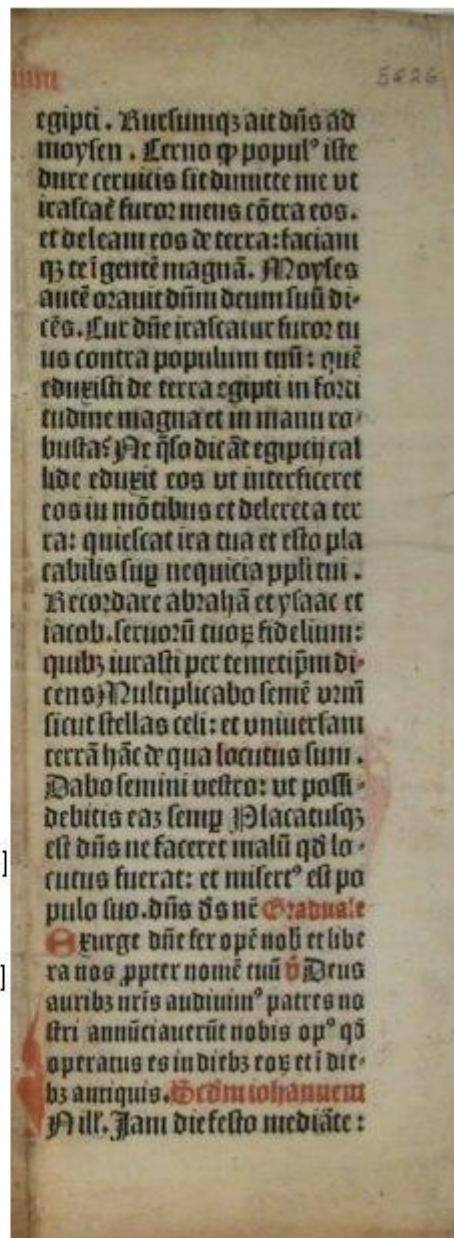 5626
egipti . Rursumqꝫ ait dn̄s ad
moysen . Cerno ꝙ popul⁹ iste
dure ceruicis sit dimitte me vt
irascat᷑ furor meus cōtra eos .
et deleam eos de terra : faciam
qꝫ te ī gentē magnā . Moyses
autē orauit dn̄m deum suū di-
cēs . Cur dn̄e irascatur furor tu
us contra populum tuū : quē
eduxisti de terra egipti in forti
tudine magna et in manu ro-
busta? Ne q̄so dicāt egiptij cal
lide eduxit eos vt interficeret
eos in mōtibus et deleret a ter
ra : quiescat ira tua et esto pla
cabilis suꝑ nequicia ppl̄i tui .
Recordare abrahā et ysaac et
iacob . seruorū tuoꝝ fidelium :
quibꝫ iurasti per temetip̄m di-
cens) Multiplicabo semē vrm̄
sicut stellas celi : et vniuersam
terrā hāc de qua locutus sum .
Dabo semini vestro : vt possi-
debitis eaꝫ semꝑ Placatusqꝫ
est dn̄s ne faceret malū qd̄ lo-
cutus fuerat : et misert⁹ est po
pulo suo . dn̄s ds̄ nē Graduale
Exurge dn̄e fer opē nob̄ et libe
ra nos ꝓpter nomē tuū v̄ Deus
auribꝫ nr̄is audiuim⁹ patres no
stri annūciauerūt nobis op⁹ qd̄
operatus es in diebꝫ eoꝝ et ī die-
bꝫ antiquis . Scd̄m iohannem
N ill̄ . Jam die festo mediāte :
]
]